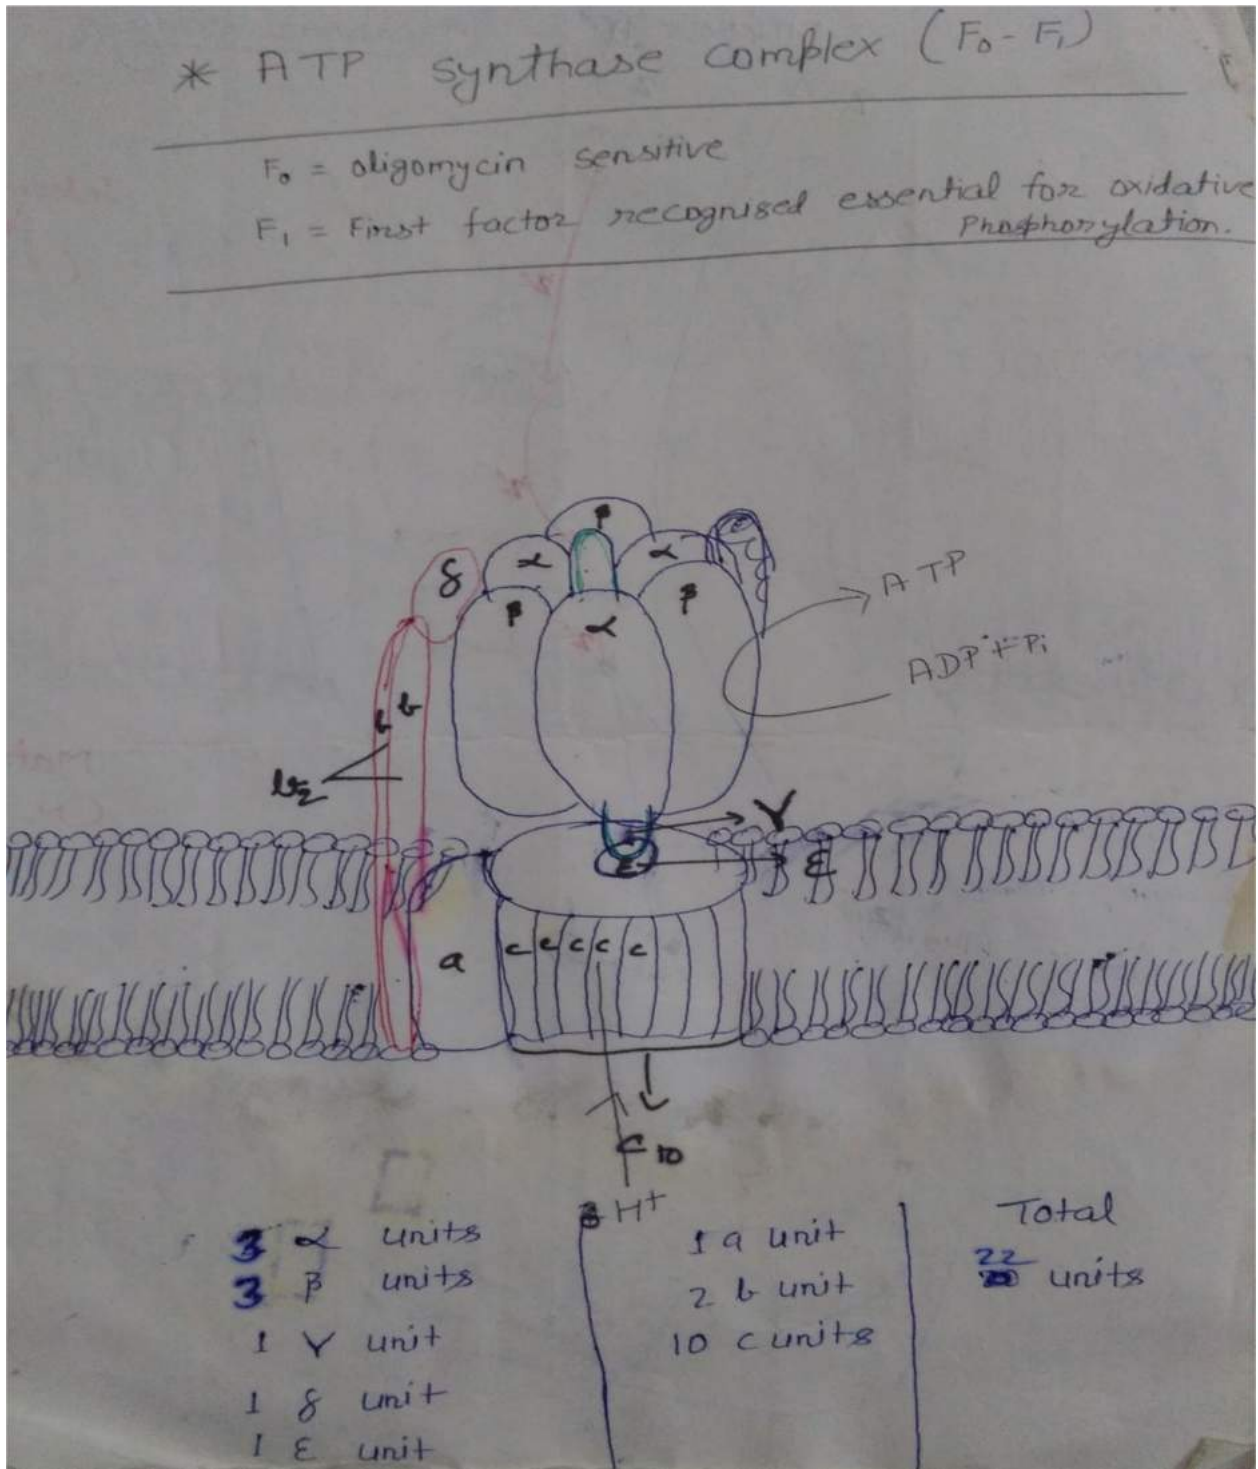 * ATP synthase complex (F₀-F₁)
F₀ = oligomycin sensitive
F₁ = First factor recognised essential for oxidative
Phosphorylation.
β
α α
δ
β α β
ATP
ADP + Pi
b b
b₂
γ
ε ε
a c c c c c
C₁₀
H⁺
3 α units
3 β units
1 γ unit
1 δ unit
1 ε unit
1 a unit
2 b unit
10 c units
Total
22 units